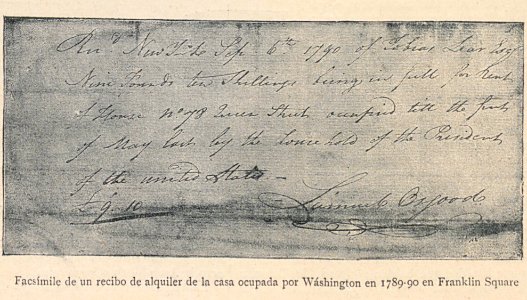 Rec.d New York Sep. 6th 1790 of Tobias Lear Esq
Nine Pounds ten Shillings being in full for Rent
of House no 78 Queen Street occupied till the first
of May last by the household of the President
of the united States —
£9..10
Samuel Osgood
Facsímile de un recibo de alquiler de la casa ocupada por Wáshington en 1789-90 en Franklin Square